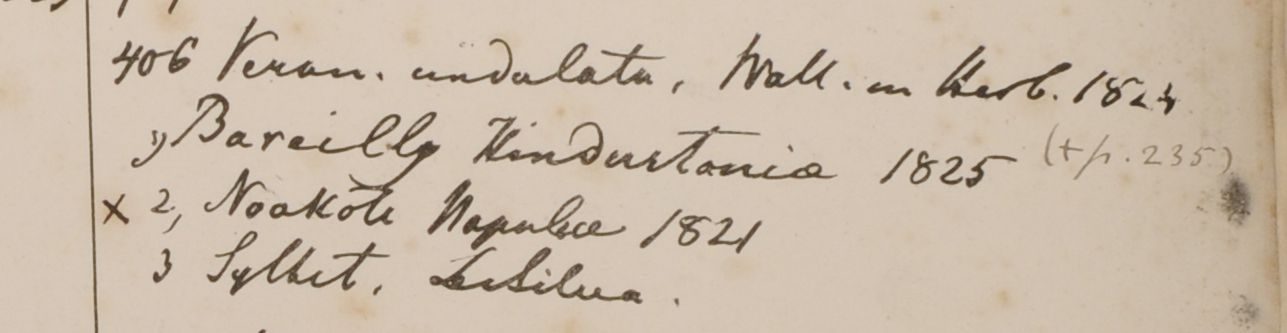 406 Veron. undulata, Wall. in Herb. 1824
1, Bareilly Hindustaniae 1825 (+p. 235)
x 2, Noakote Napaliae 1821
3 Sylhet. De Silva.